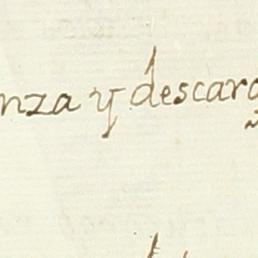 nza y descarg